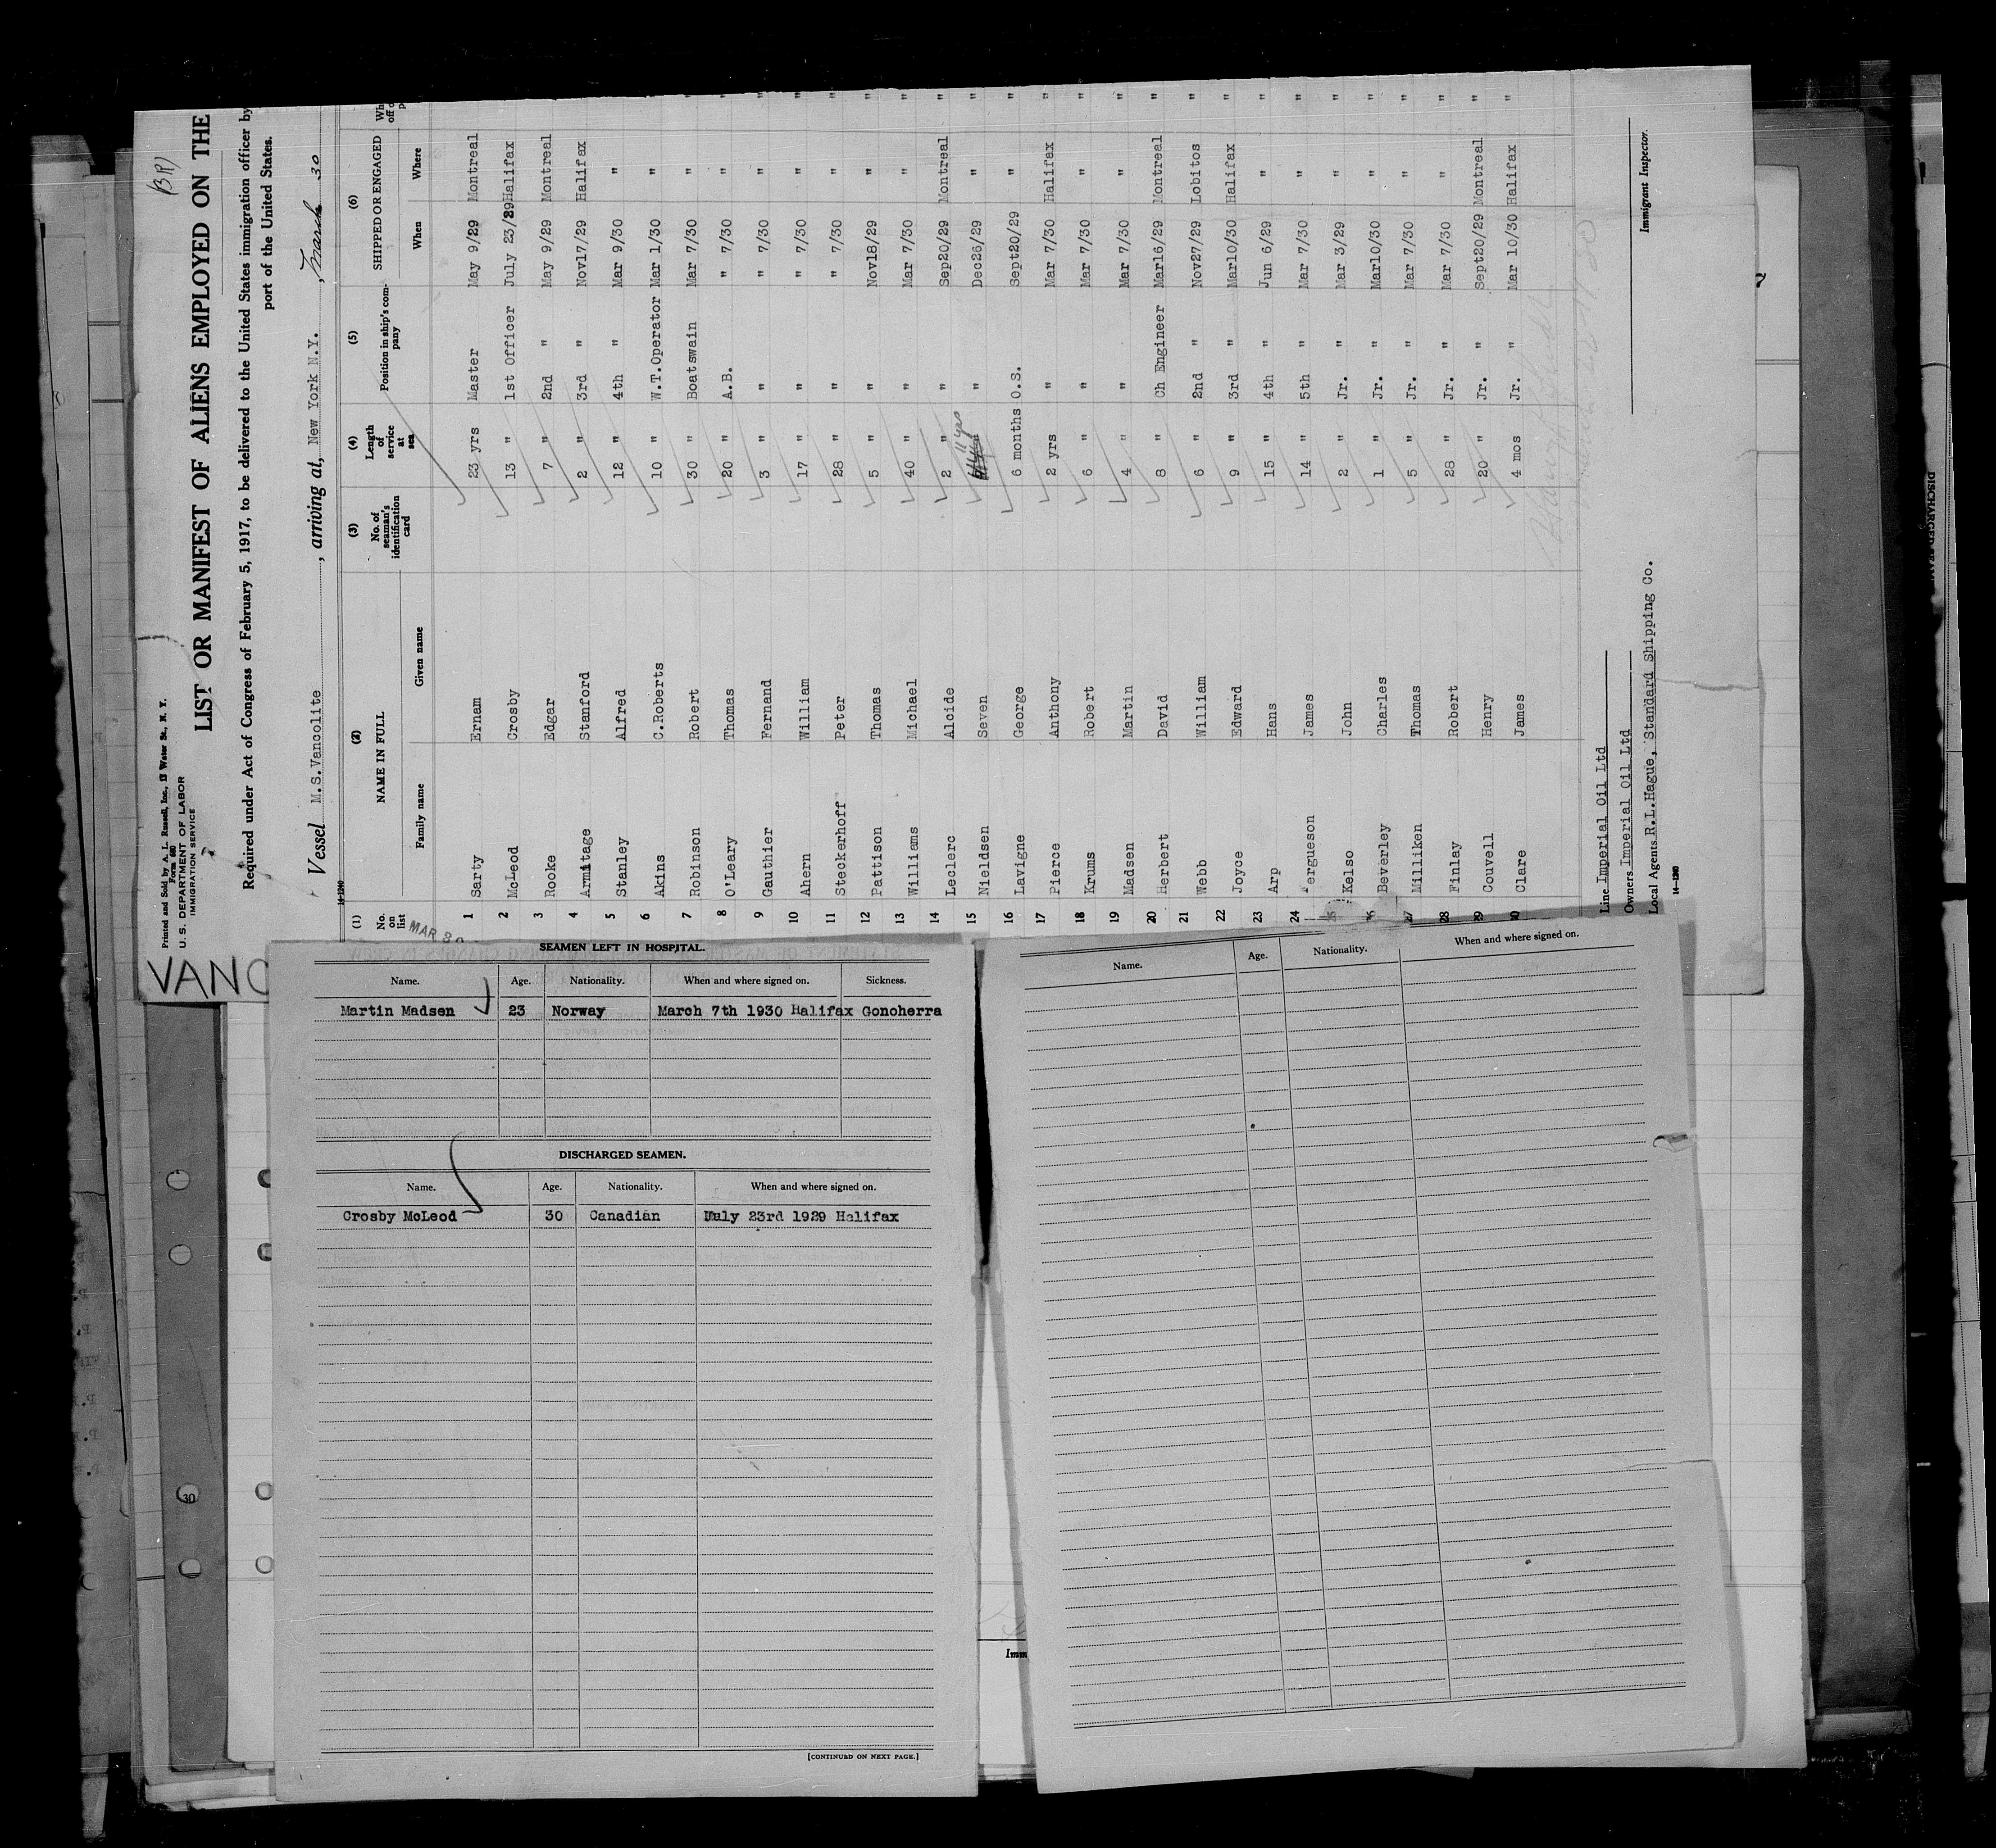 (BR)
Printed and Sold by A. L. Russell, Inc., 12 Water St., N. Y.
Form 680
U. S. DEPARTMENT OF LABOR
IMMIGRATION SERVICE
LIST OR MANIFEST OF ALIENS EMPLOYED ON THE
Required under Act of Congress of February 5, 1917, to be delivered to the United States immigration officer by
port of the United States.
Vessel M.S.Vancolite, arriving at, New York N.Y., March 30
14-1240
(1) (2) (3) (4) (5) (6)
No. on list NAME IN FULL No. of seaman's identification card Length of service at sea Position in ship's company SHIPPED OR ENGAGED
Family name Given name When Where
MAR 30
1 Sarty Ernam 23 yrs Master May 9/29 Montreal
2 McLeod Crosby 13 " 1st Officer July 23/29 Halifax "
3 Rooke Edgar 7 " 2nd " May 9/29 Montreal "
4 Armitage Stanford 2 " 3rd " Nov17/29 Halifax "
5 Stanley Alfred 12 " 4th " Mar 9/30 " "
6 Akins C.Roberts 10 " W.T.Operator Mar 1/30 " "
7 Robinson Robert 30 " Boatswain Mar 7/30 " "
8 O'Leary Thomas 20 " A.B. " 7/30 " "
9 Gauthier Fernand 3 " " " 7/30 " "
10 Ahern William 17 " " " 7/30 " "
11 Steckerhoff Peter 28 " " " 7/30 " "
12 Pattison Thomas 5 " " Nov18/29 " "
13 Williams Michael 40 " " Mar 7/30 " "
14 Leclerc Alcide 2 " " Sep20/29 Montreal "
15 Nieldsen Seven 11 yrs " Dec26/29 " "
16 Lavigne George 6 months O.S. Sept20/29 " "
17 Pierce Anthony 2 yrs " Mar 7/30 Halifax "
18 Krums Robert 6 " " Mar 7/30 " "
19 Madsen Martin 4 " " Mar 7/30 " "
20 Herbert David 8 " Ch Engineer Mar16/29 Montreal "
21 Webb William 6 " 2nd " Nov27/29 Lobitos "
22 Joyce Edward 9 " 3rd " Mar10/30 Halifax "
23 Arp Hans 15 " 4th " Jun 6/29 " "
24 Fergueson James 14 " 5th " Mar 7/30 " "
25 Kelso John 2 " Jr. " Mar 3/29 " "
26 Beverley Charles 1 " Jr. " Mar10/30 " "
27 Milliken Thomas 5 " Jr. " Mar 7/30 " "
28 Finlay Robert 28 " Jr. " Mar 7/30 " "
29 Couvell Henry 20 " Jr. " Sept20/29 Montreal "
30 Clare James 4 mos Jr. " Mar 10/30 Halifax "
Line Imperial Oil Ltd
Owners Imperial Oil Ltd
Local Agents R.L.Hague, Standard Shipping Co.
Immigrant Inspector.
14-1240
VANC
SEAMEN LEFT IN HOSPITAL.
Name. Age. Nationality. When and where signed on. Sickness.
Martin Madsen 23 Norway March 7th 1930 Halifax Gonoherra
DISCHARGED SEAMEN.
Name. Age. Nationality. When and where signed on.
Crosby McLeod 30 Canadian July 23rd 1929 Halifax
[CONTINUED ON NEXT PAGE.]
Name. Age. Nationality. When and where signed on.
Imm
30